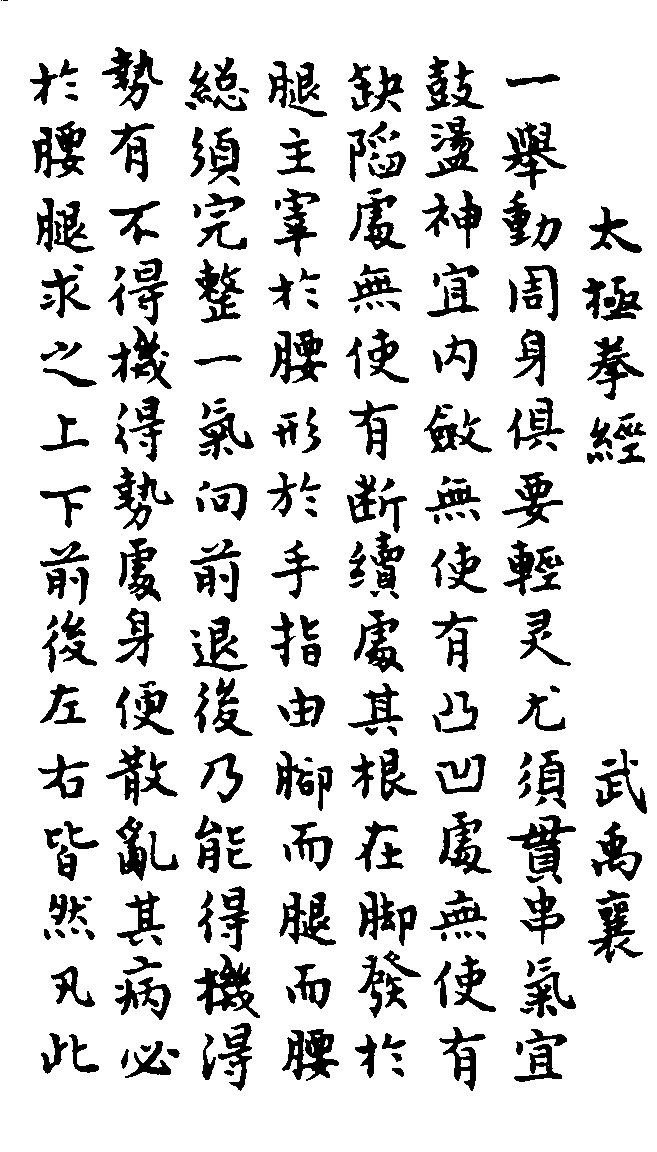 太極拳經 武禹襄
一舉動周身俱要輕灵尤須貫串氣宜
鼓盪神宜内斂無使有凸凹處無使有
缺陷處無使有断續處其根在脚發於
腿主宰於腰形於手指由腳而腿而腰
総須完整一氣向前退後乃能得機得
勢有不得機得勢處身便散亂其病必
於腰腿求之上下前後左右皆然凡此